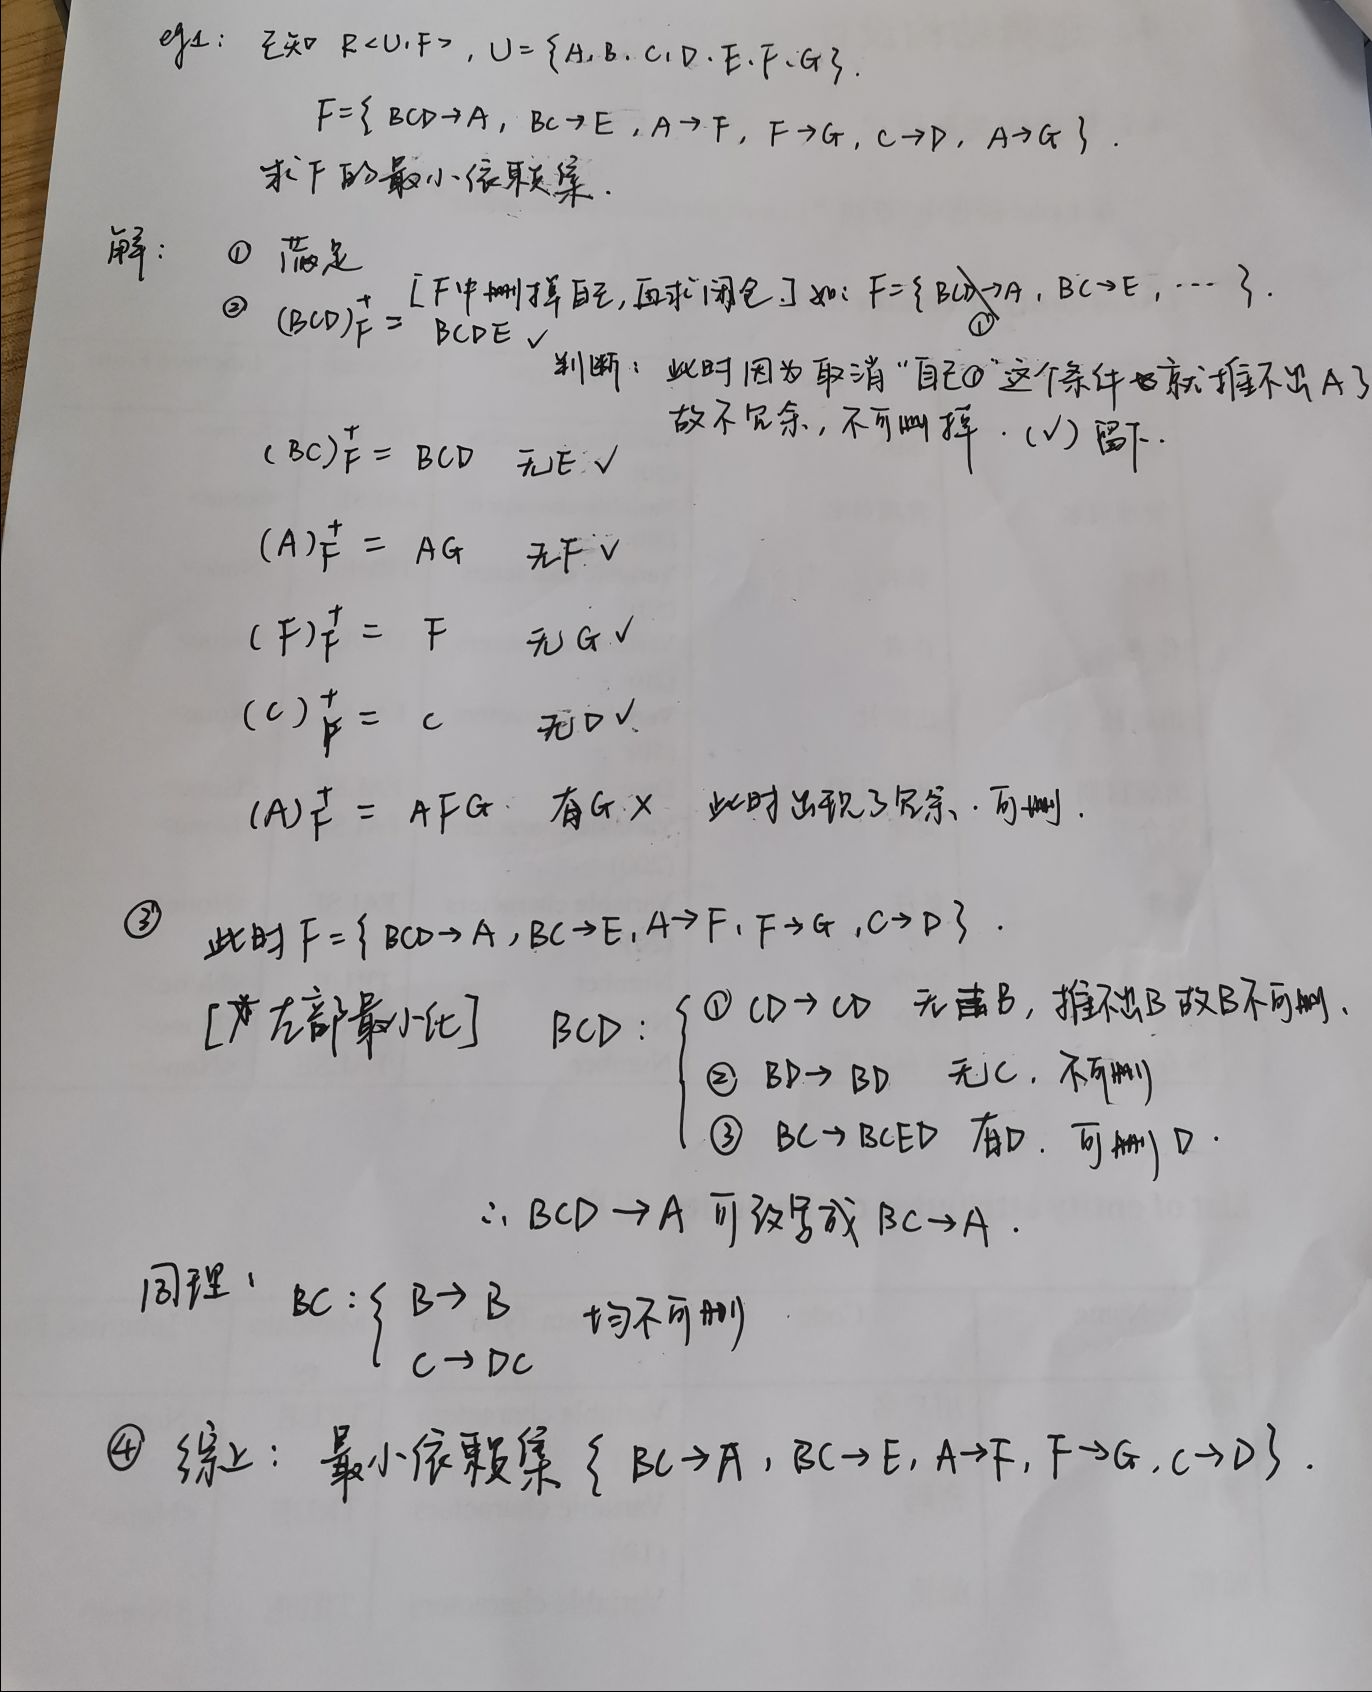 eg1: 已知 R<U,F>, U={A.B.C.D.E.F.G}.
F={BCD→A, BC→E, A→F, F→G, C→D, A→G}.
求F的最小依赖集.
解: ① 满足
② (BCD)F+ = [F中删掉自己,再求闭包.] 如: F={BCD→A, BC→E, ...}.
BCDE ✓ ①
判断: 此时因为取消"自己①"这个条件 就推不出A了
故不冗余, 不可删掉. (✓) 留下.
(BC)F+ = BCD 无E ✓
(A)F+ = AG 无F ✓
(F)F+ = F 无G ✓
(C)F+ = C 无D ✓
(A)F+ = AFG 有G × 此时出现了冗余.可删.
③ 此时F={BCD→A, BC→E, A→F, F→G, C→D}.
[左部最小化] BCD: { ① CD→CD 无B, 推不出B故B不可删.
② BD→BD 无C. 不可删
③ BC→BCED 有D. 可删D.
∴ BCD→A可改写成BC→A.
同理: BC: { B→B 均不可删
C→DC
④ 综上: 最小依赖集{BC→A, BC→E, A→F, F→G, C→D}.